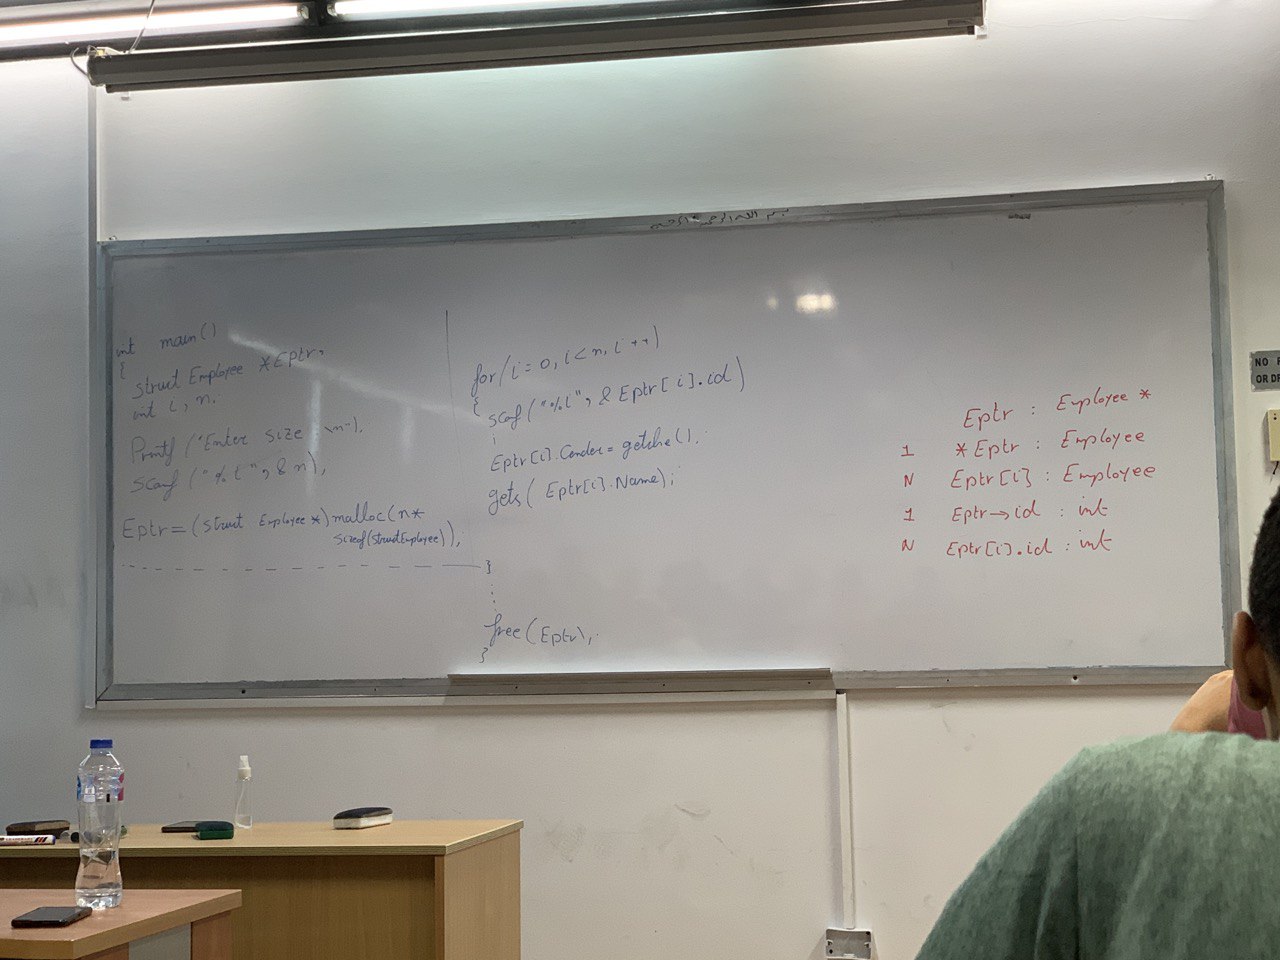 بسم الله الرحمن الرحيم
int main()
{
struct Employee *Eptr;
int i, n;
Printf ("Enter size \n");
scanf ("%i", &n);
Eptr = (struct Employee *) malloc(n*
sizeof(struct Employee));
for (i = 0, i < n, i ++)
{
scanf ("%i", & Eptr[i].id)
Eptr[i].Gender = getche();
gets( Eptr[i].Name);
}
free (Eptr);
}
Eptr : Employee *
1 *Eptr : Employee
N Eptr[i] : Employee
1 Eptr→id : int
N Eptr[i].id : int
NO
OR